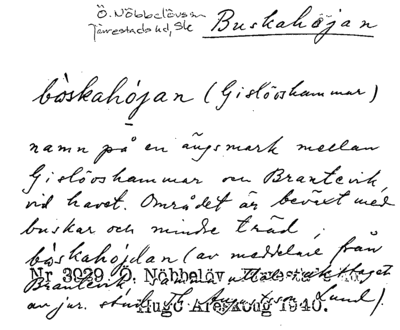 Ö. Nöbbelövs sn
Järrestads hd, Sk
Buskahöjan
bòskahójan (Gislövshammar)
namn på en ängsmark mellan
Gislövshammar och Brantevik,
vid havet. Området är beväxt med
buskar och mindre träd;
bòskahójdan (av meddelare från
Nr 3029. Ö. Nöbbelöv
Brantevik
av jur. stud. Lund).
Hugo Areskoug 1940.